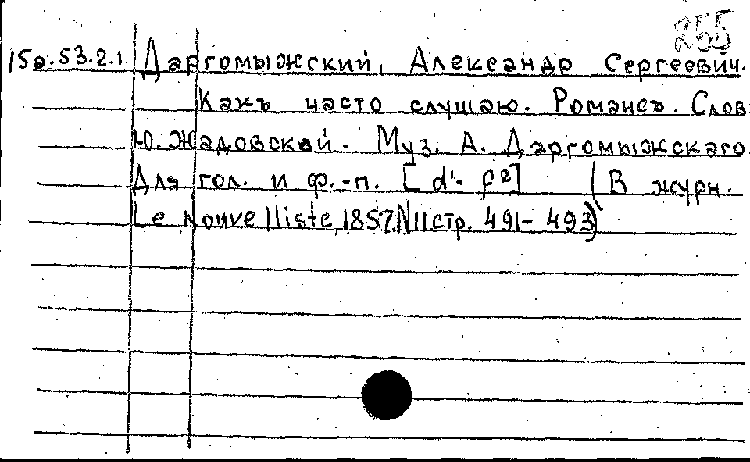 255
15а.53.2.1 Даргомыжский, Александр Сергеевич.
Какъ часто слушаю. Романсъ. Слов
Ю. Жадовской. Муз. А. Даргомыжскаго
Для гол. и ф.-п. [d'- f²] (В журн.
Le Nouvelliste, 1857, N11 стр. 491-493)